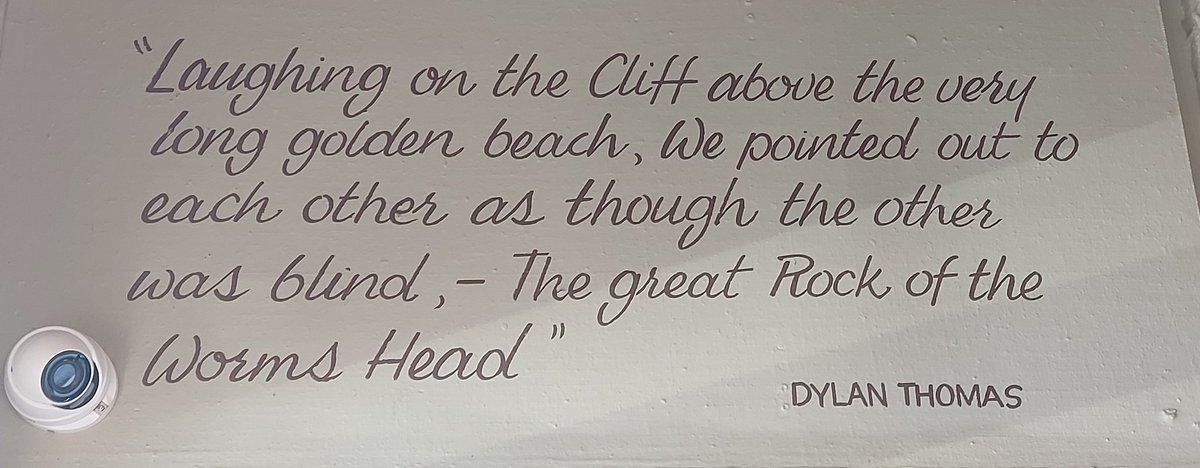 "Laughing on the Cliff above the very
long golden beach, We pointed out to
each other as though the other
was blind,- The great Rock of the
Worms Head"
DYLAN THOMAS